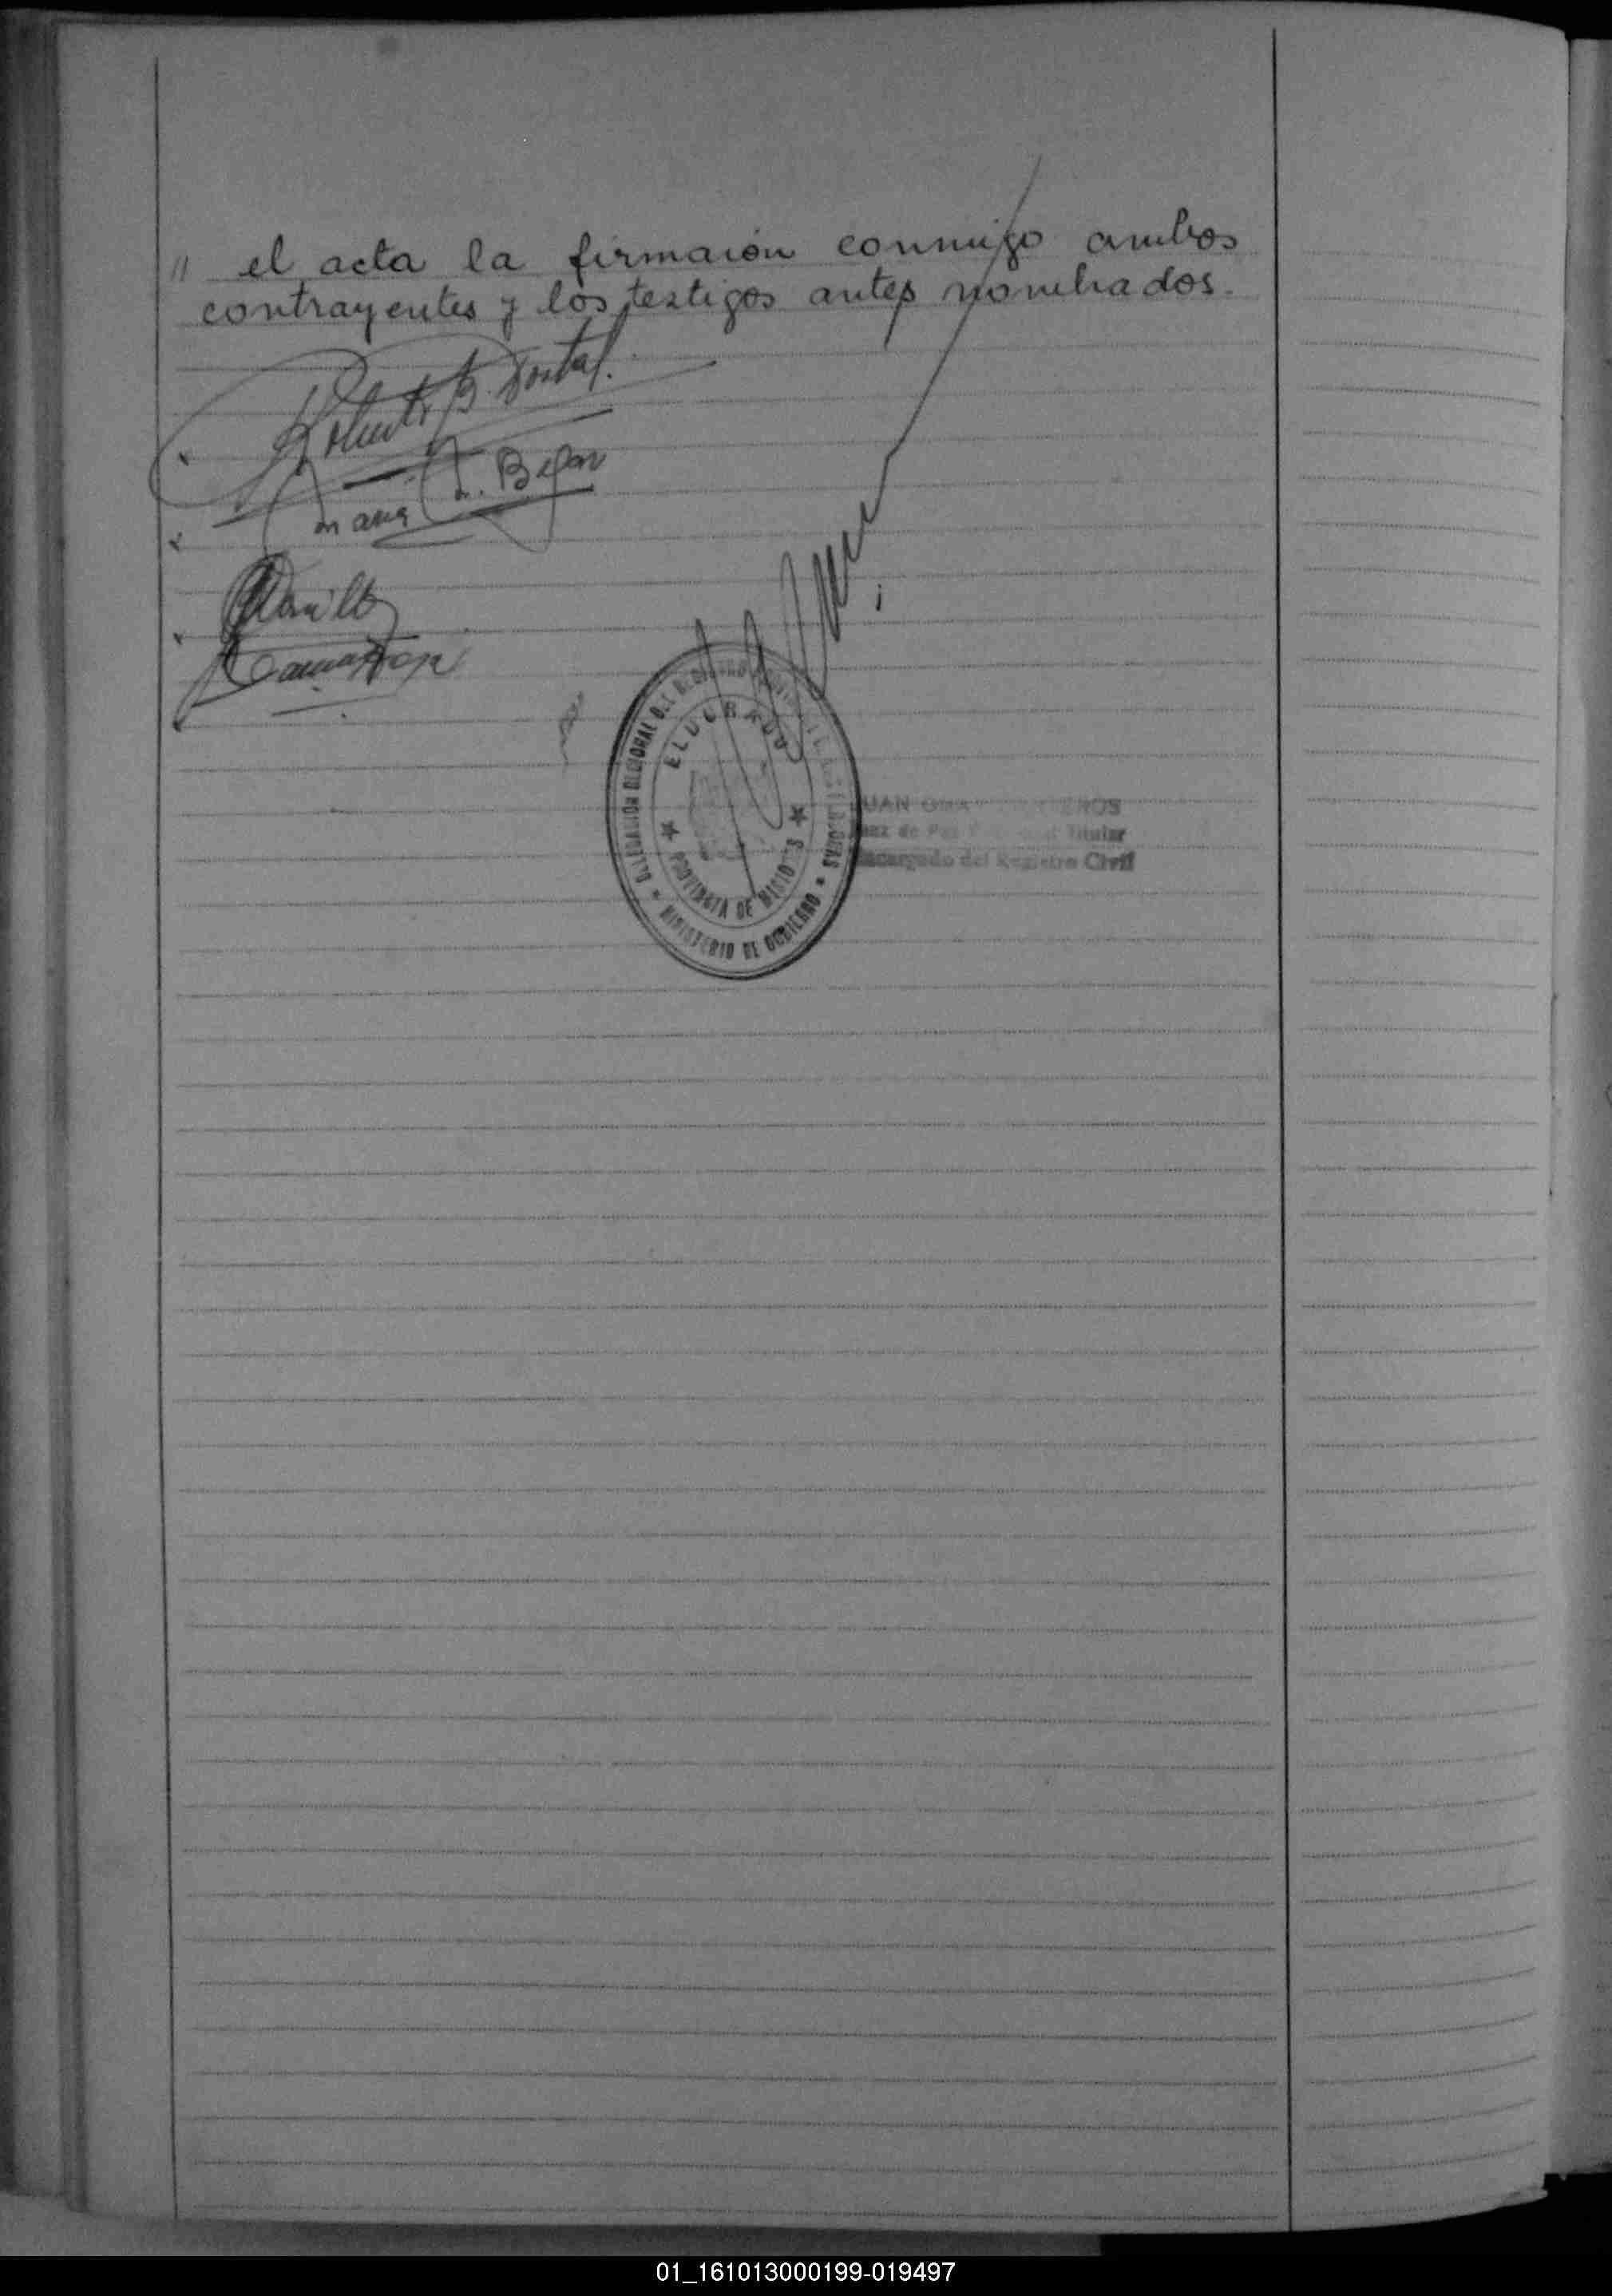 " el acta la firmaron conmigo ambos
contrayentes y los testigos antes nombrados.
Roberto B. Dostal.
Danilo
DELEGACION REGIONAL DEL REGISTRO
MINISTERIO DE GOBIERNO
ELDORADO
PROVINCIA DE MISIONES
JUAN
Juez de Paz Titular
Encargado del Registro Civil
01_161013000199-019497